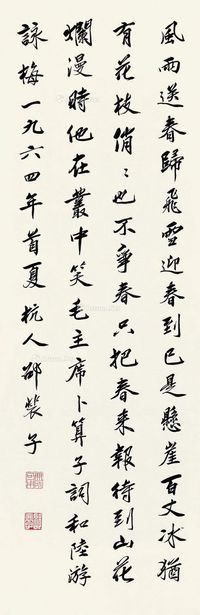 風雨送春歸飛雪迎春到已是懸崖百丈冰猶
有花枝俏〻也不爭春只把春來報待到山花
爛漫時他在叢中笑毛主席卜算子詞和陸游
詠梅一九六四年首夏杭人邵裴子